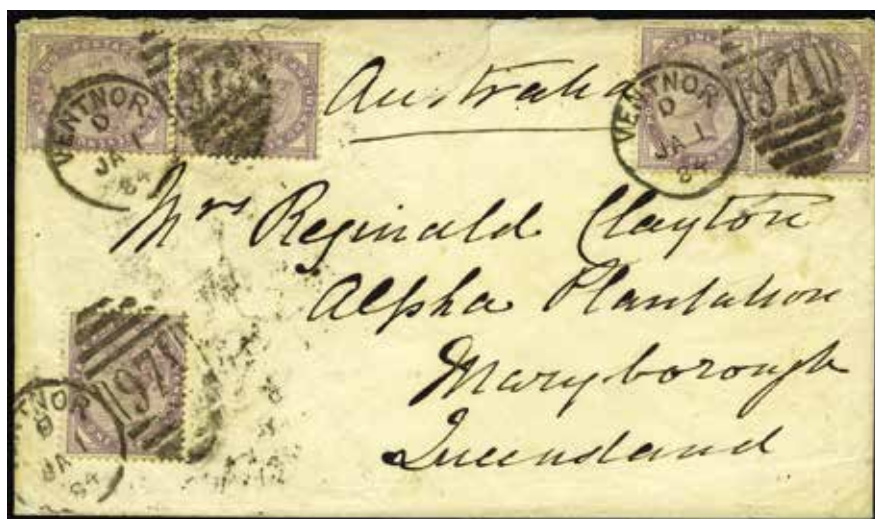 Australia
VENTNOR
D
JA 1
84
VENTNOR
D
JA 1
84
971
Mrs Reginald Clayton
Alpha Plantation
Maryborough
Queensland
971
NTNOR
D
JA
84